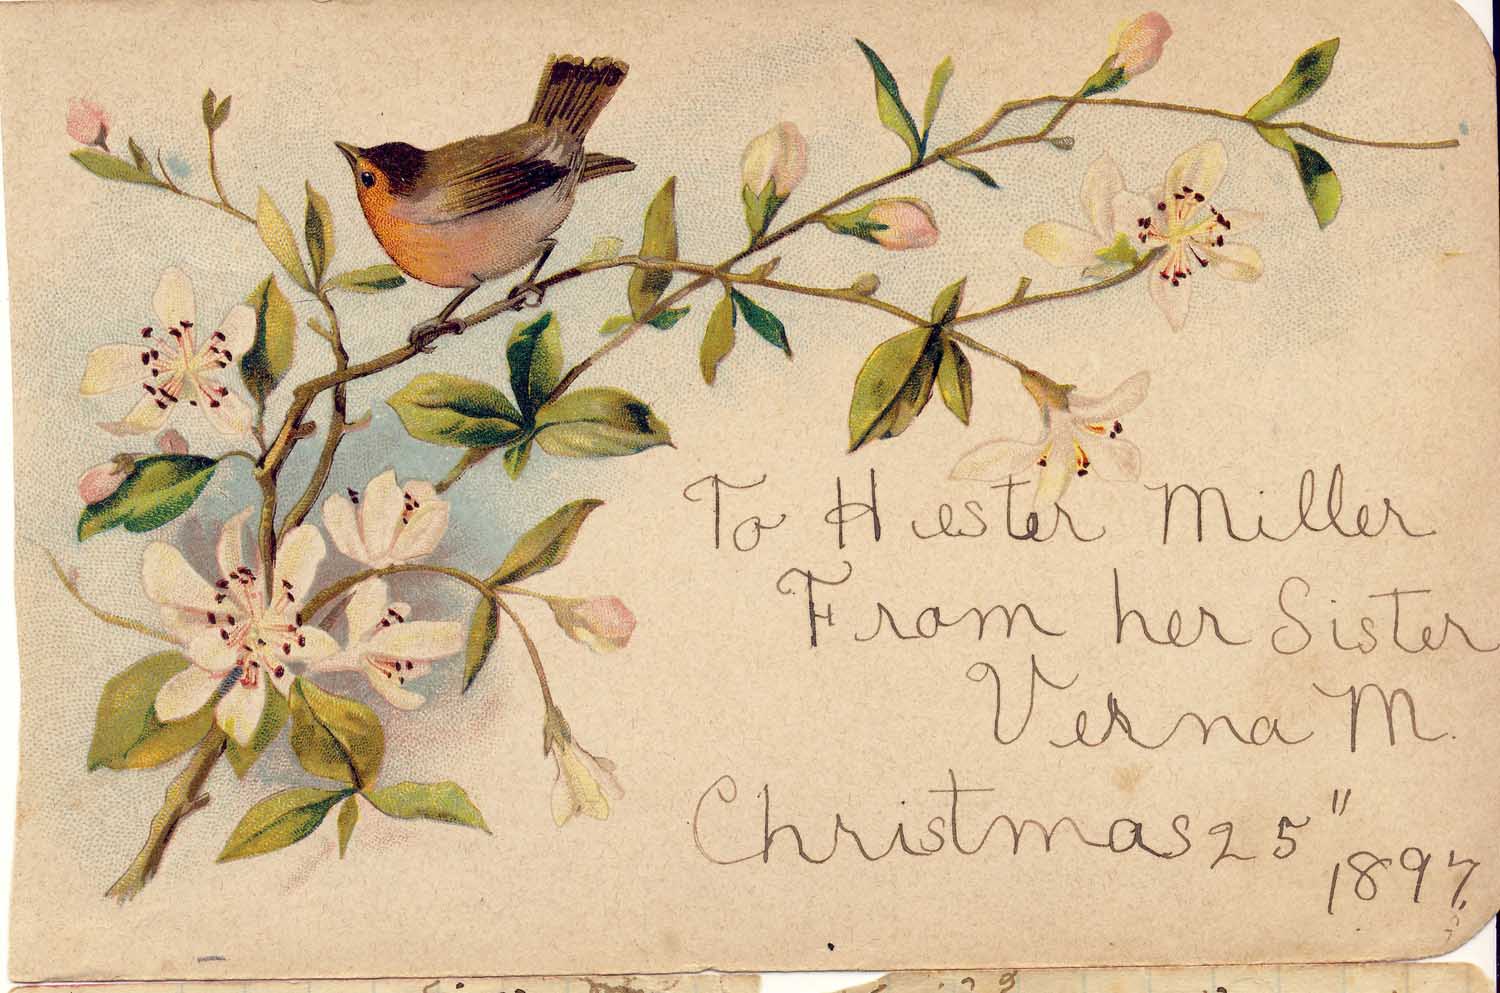 To Hester Miller
From her Sister
Verna M.
Christmas 25"
1897.